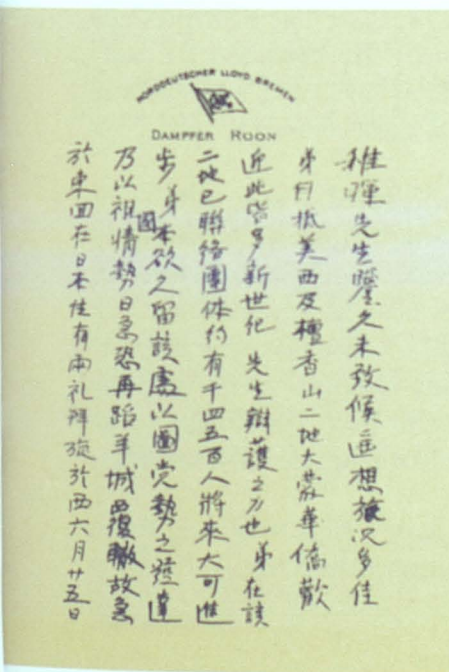 NORDDEUTSCHER LLOYD BREMEN
DAMPFER ROON
稚暉先生鑒久未致候遥想旅况多佳
弟月抵美西及檀香山二地大蒙華僑歡
迎此皆多新世纪 先生辯護之力也 弟在該
二地已聯絡團体约有千四五百人將來大可進
步 弟本欲久留該處以圖党勢之發達
乃以祖國情勢日急恐再蹈羊城覆轍故急
於東回在日本住有兩礼拜旋於西六月廿五日